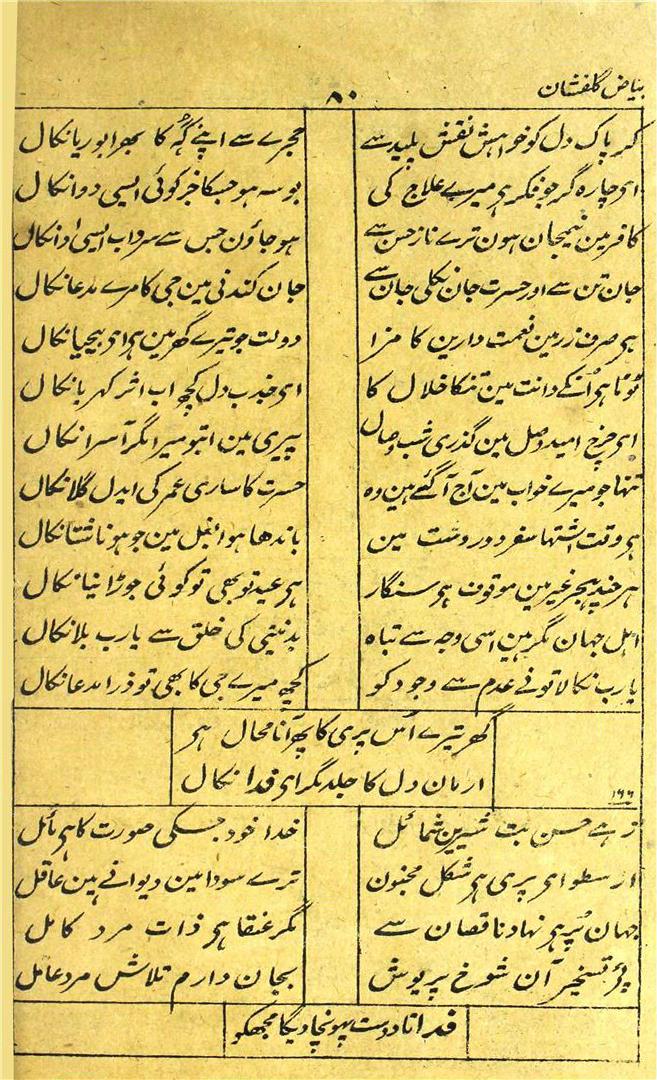 بیاض گلفشان
۸۰
کر پاک دل کو خواہش نفس پلید سے حجرے سے اپنے گھر کا بھرا بوریا نکال
ای چارہ گر جو فکر ہی میرے علاج کی بوسہ ہو جسکا خر کوئی ایسی دوا نکال
کافر مین نیمجان ہون ترے ناز حسن سے ہو جاؤن جس سے سرد اب ایسی ادا نکال
جان تن سے اور حسرت جان نکلی جان سے جان کندنی مین جی کا مرے مدعا نکال
ہی صرف زر مین نعمت دارین کا مزا دولت جو تیرے گھر مین ہی ای بیحیا نکال
ٹوٹا ہی اُنکے دانت مین تنکا خلال کا ای جذب دل کچھ اب اثر کہربا نکال
ای چرخ امید وصل مین گذری شب وصال پیری مین اتبو میرا مگر آسرا نکال
تنہا جو میرے خواب مین آج آگئے ہین وہ حسرت کا ساری عمر کی ایدل گلا نکال
ہی وقت اشتہا سفر دور و شت مین باندھا ہوا بغل مین جو ہو ناشتا نکال
ہر چند ہجر غیر مین موقوف ہی سنگار ہی عید تو بھی تو کوئی جوڑا نیا نکال
اہل جہان مگر ہین اسی وجہ سے تباہ بد نیتی کی خلق سے یارب بلا نکال
یارب نکالا تونے عدم سے وجود کو کچھ میرے جی کا بھی تو ذرا مدعا نکال
گھر تیرے اُس پری کا پھر آنا محال ہی
ارمان دل کا جلد مگر ای فدا نکال
۱۶۶
زہے حسن بت شیرین شمائل خدا خود جسکی صورت کا ہی مائل
ارسطو ای پری ہی شکل مجنون ترے سودا مین دیوانے ہین عاقل
جہان پُر ہی نہاد ناقصان سے مگر عنقا ہی ذات مرد کامل
پئے تسخیر آن شوخ پریوش بجان دارم تلاش مرد عامل
فدا تا دوست پہونچا دیگا مجھکو